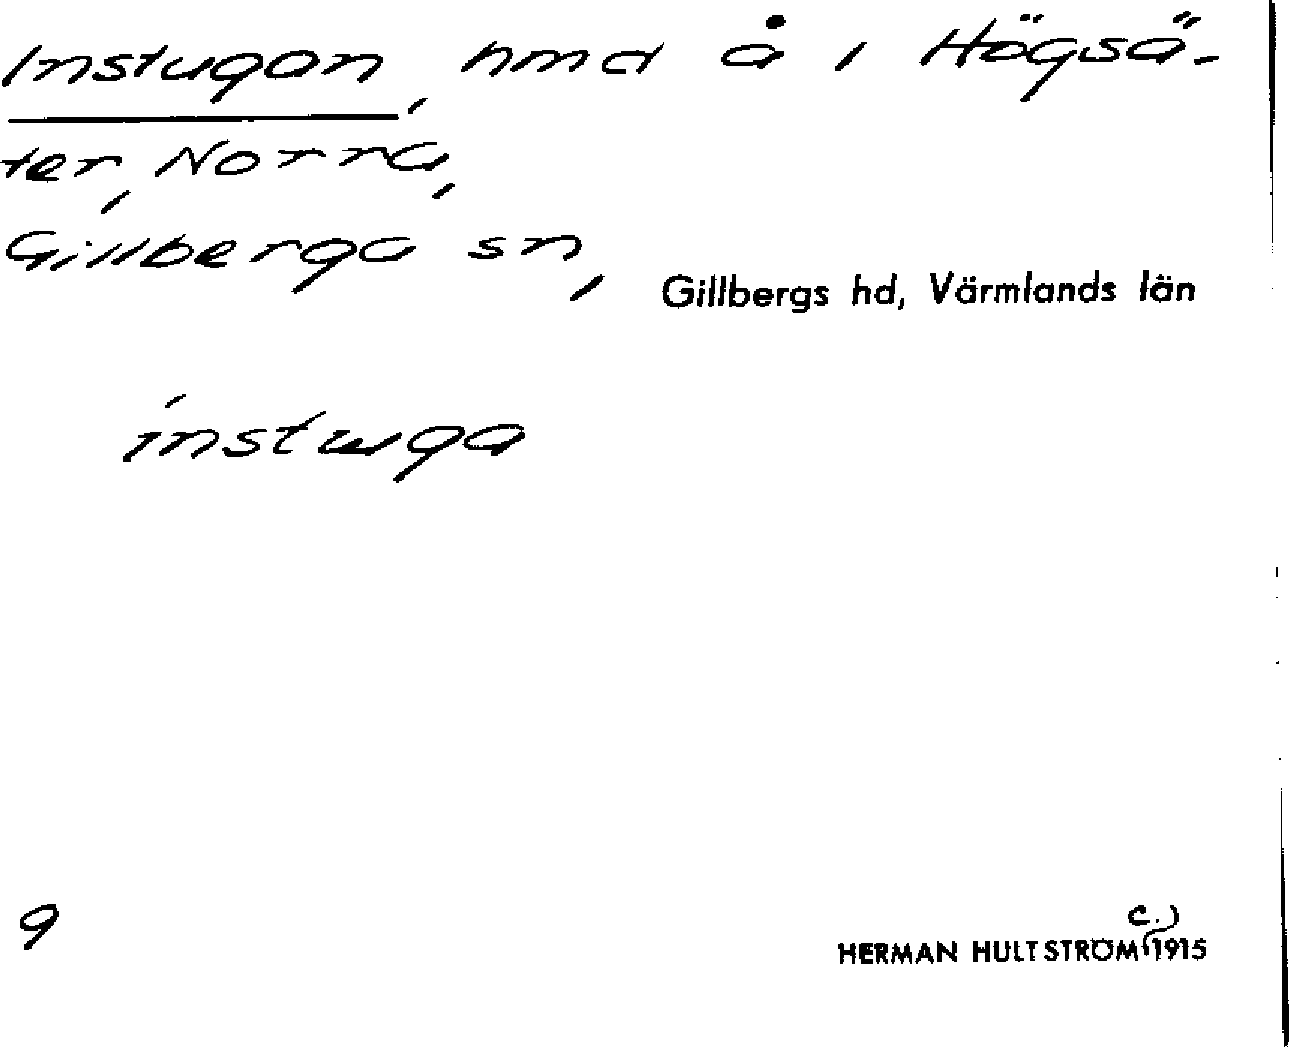 Instugan, hmd å i Högsä-
ter, Norra,
Gillberga sn,
Gillbergs hd, Värmlands län
instuga
9
c.)
HERMAN HULTSTRÖM 1915